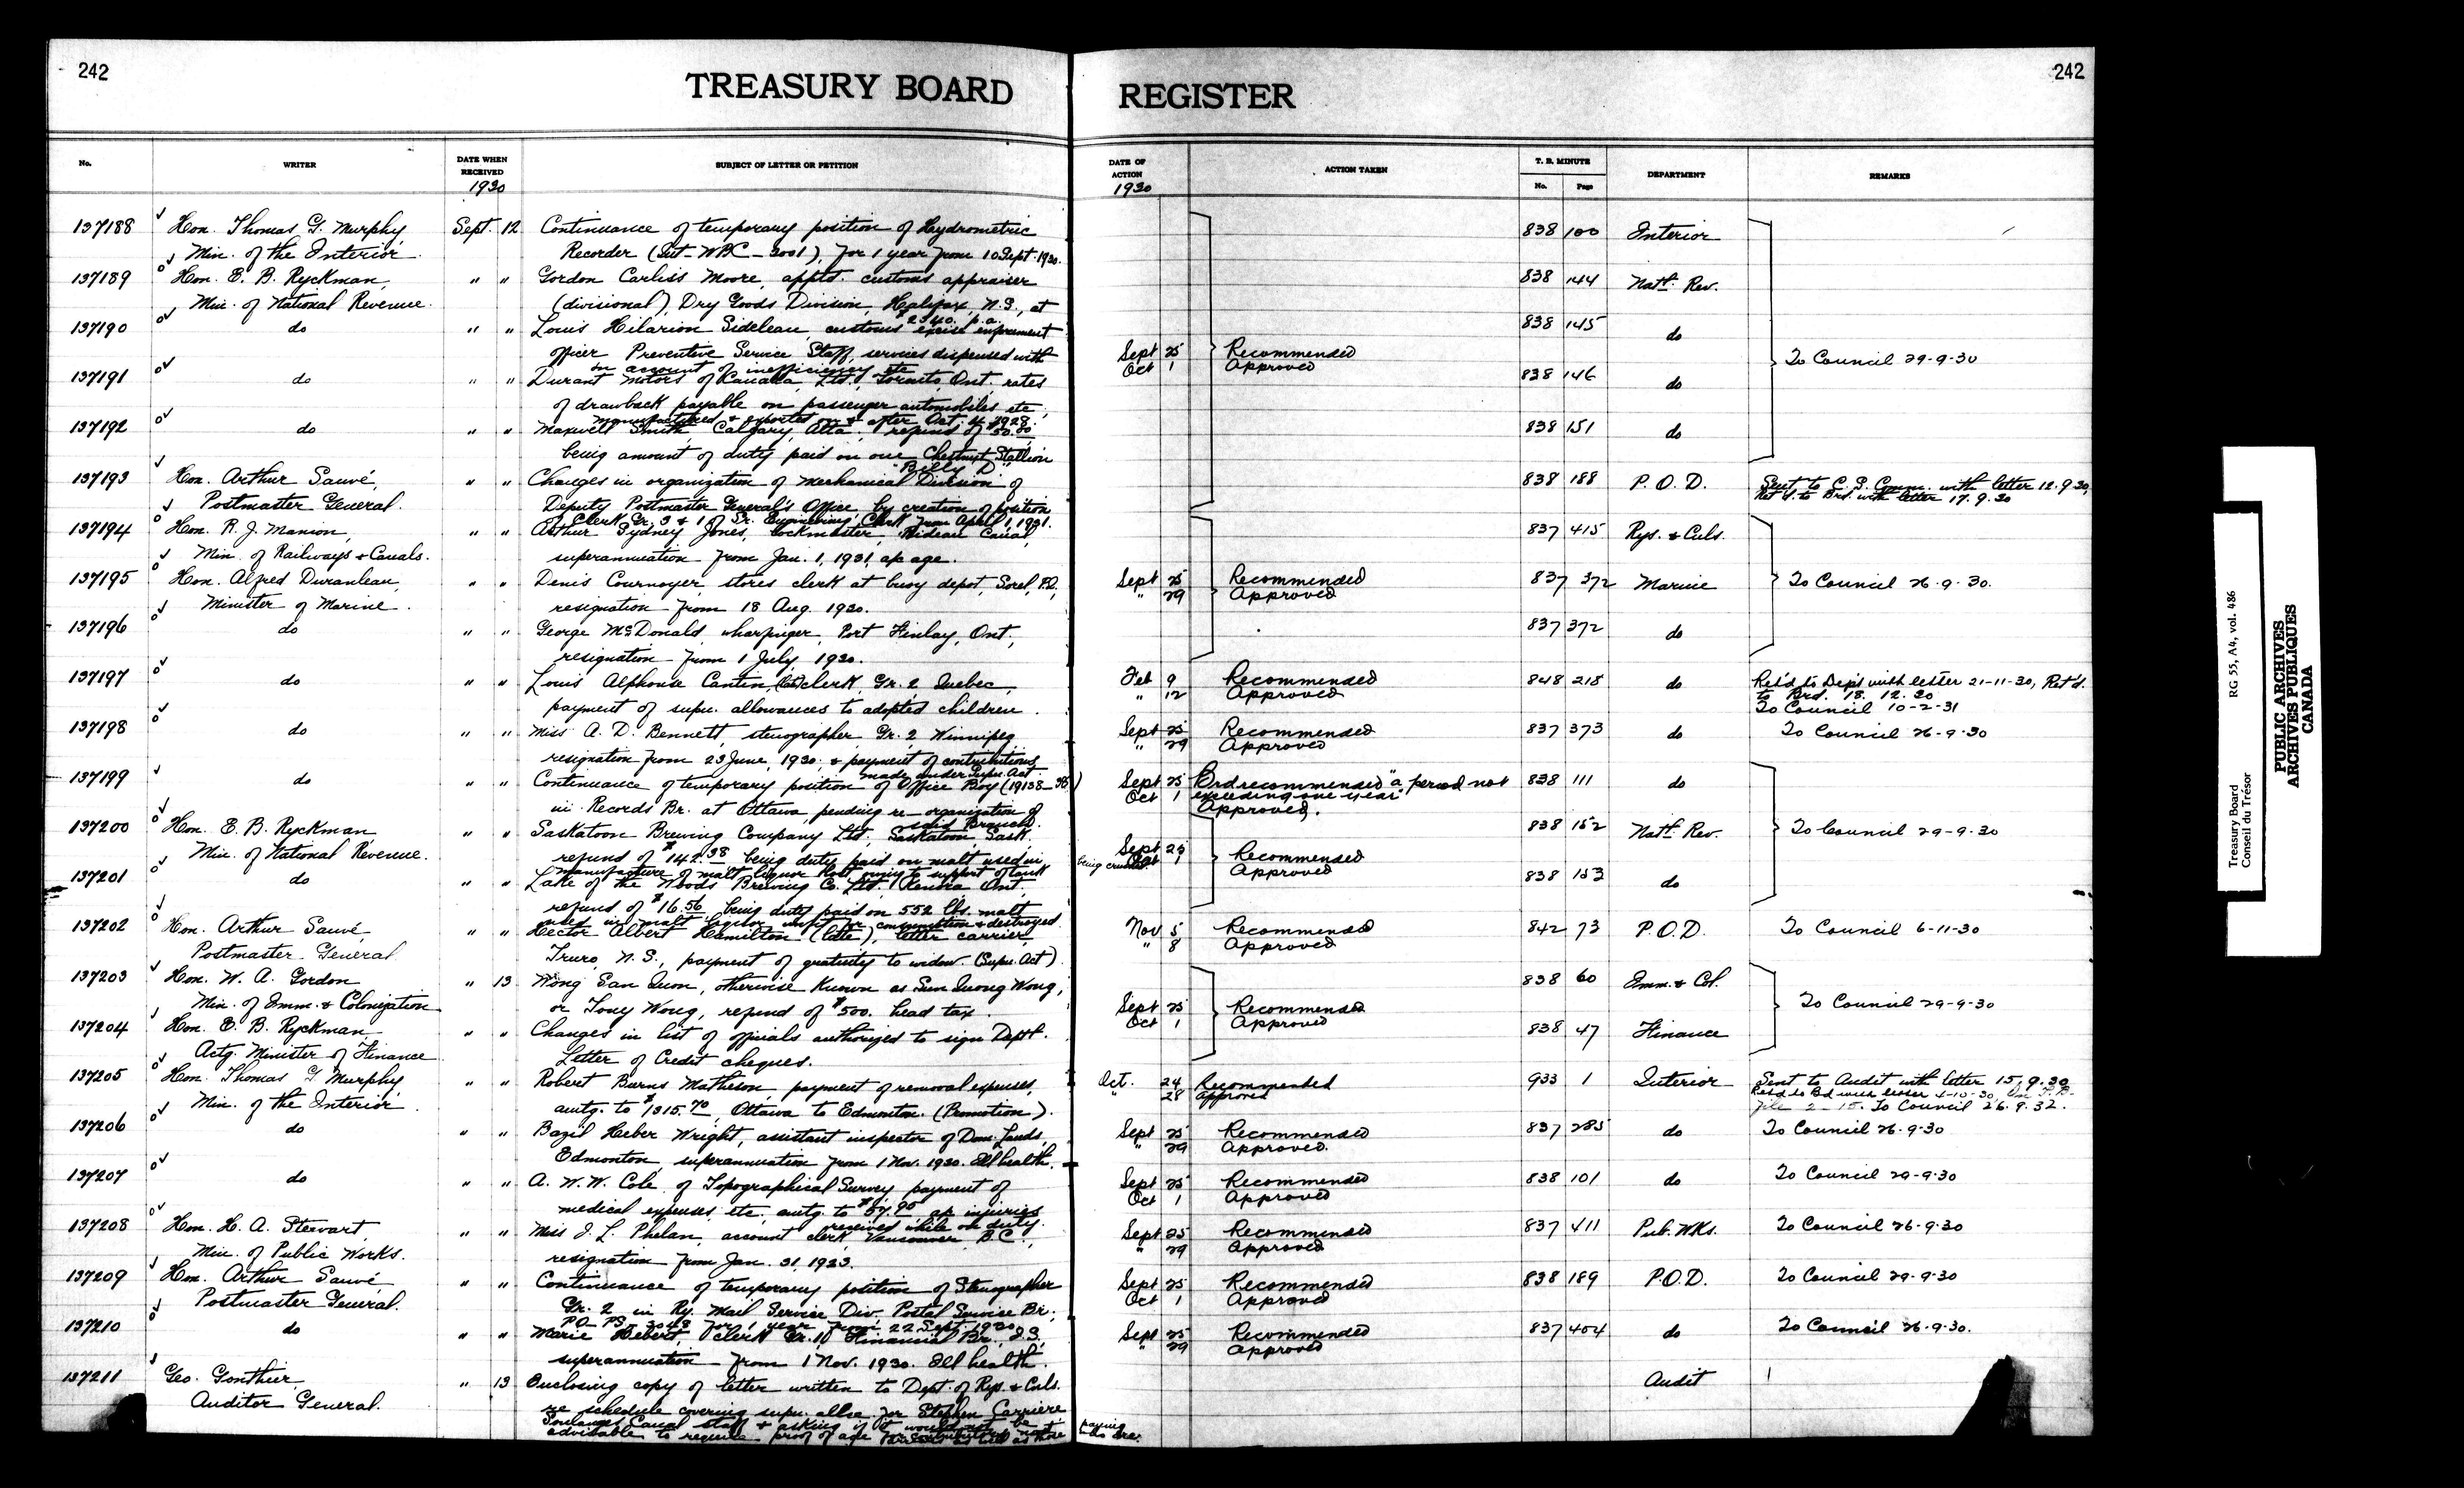 242
TREASURY BOARD REGISTER
242
No. WRITER DATE WHEN RECEIVED 1930 SUBJECT OF LETTER OR PETITION DATE OF ACTION 1930 ACTION TAKEN T. B. MINUTE No. Page DEPARTMENT REMARKS
137188 Hon. Thomas G. Murphy Sept. 12 Continuance of temporary position of Hydrometric 838 100 Interior
Min. of the Interior Recorder (Int-WPC-3001), for 1 year from 10 Sept. 1930.
137189 Hon. E. B. Ryckman, " " Gordon Carliss Moore, apptd. customs appraiser 838 144 Natl. Rev.
Min. of National Revenue. (divisional), Dry Goods Division, Halifax, N.S., at
$2340. p.a.
137190 do " " Louis Hilarion Sideleau, customs excise enforcement 838 145 do
officer Preventive Service Staff, services dispensed with Sept 25 Recommended To Council 29-9-30
on account of inefficiency etc Oct 1 Approved
137191 do " " Durant Motors of Canada, Ltd., Toronto, Ont. rates 838 146 do
of drawback payable on passenger automobiles etc,
manufactured & exported on & after Oct. 4, 1928.
137192 do " " Maxwell Smith, Calgary, Alta., refund of $50.00 838 151 do
being amount of duty paid on our Chestnut Stallion
"Billy D"
137193 Hon. Arthur Sauvé, " " Changes in organization of Mechanical Division of 838 188 P. O. D. Sent to C. S. Comm. with letter 12.9.30,
Postmaster General. Deputy Postmaster General's Office by creation of position Ret'd. to Brd. with letter 17.9.30
of Clerk Gr. 3 & 1 of Sr. Engineering Clerk from April 1, 1931.
137194 Hon. R. J. Manion, " " Arthur Sydney Jones, lockmaster, Rideau Canal, 837 415 Rys. & Cnls.
Min. of Railways & Canals. superannuation from Jan. 1, 1931, a/c age.
137195 Hon. Alfred Duranleau, " " Denis Cournoyer, stores clerk at buoy depot, Sorel, P.Q. Sept 25 Recommended 837 372 Marine To Council 26-9-30.
Minister of Marine. resignation from 18 Aug. 1930. " 29 Approved
137196 do " " George McDonald, wharfinger, Port Finlay, Ont., 837 372 do
resignation from 1 July, 1930.
137197 do " " Louis Alphonse Cantin, (late) clerk, Gr. 2, Quebec, Feb 9 Recommended 848 215 do Ret'd to Dept with letter 21-11-30, Ret'd.
payment of supn. allowances to adopted children. " 12 Approved to Brd. 18. 12. 30
To Council 10-2-31
137198 do " " Miss A. D. Bennett, stenographer Gr. 2 Winnipeg Sept 25 Recommended 837 373 do To Council 26-9-30
resignation from 23 June, 1930, & payment of contributions " 29 Approved
made under Supn. Act.
137199 do " " Continuance of temporary position of Office Boy (19138- ) Sept 25 Brd recommended "a period not 838 111 do
in Records Br. at Ottawa pending re-organization of Oct 1 exceeding one year"
said Branch. Approved.
137200 Hon. E. B. Ryckman " " Saskatoon Brewing Company Ltd., Saskatoon, Sask. 838 152 Natl. Rev. To Council 29-9-30
Min. of National Revenue. refund of $142.38 being duty paid on malt used in Sept 25 Recommended
manufacture of malt liquor lost owing to support of tank being crushed. Oct 1 Approved
137201 do " " Lake of the Woods Brewing Co. Ltd. Kenora Ont. 838 153 do
refund of $16.56 being duty paid on 552 lbs. malt
used in malt liquor unfit for consumption & destroyed
137202 Hon. Arthur Sauvé " " Hector Albert Hamilton (late), letter carrier Nov 5 Recommended 842 73 P.O.D. To Council 6-11-30
Postmaster General Truro, N.S., payment of gratuity to widow. (Supn. Act) " 8 Approved
137203 Hon. W. A. Gordon " 13 Wong San Quon, otherwise known as Sun Quong Wong, 838 60 Imm. & Col.
Min. of Imm. & Colonization or Tony Wong, refund of $500. head tax. Sept 25 Recommended To Council 29-9-30
137204 Hon. E. B. Ryckman " " Changes in list of officials authorized to sign Deptl. Oct 1 Approved 838 47 Finance
Actg. Minister of Finance Letter of Credit cheques.
137205 Hon. Thomas G Murphy " " Robert Burns Matheson, payment of removal expenses, Oct. 24 Recommended 933 1 Interior Sent to Audit with letter 15.9.30
Min. of the Interior amtg. to $1315.70, Ottawa to Edmonton. (Promotion). " 28 Approved Ret'd to Bd with letter 4-10-30, On T.B.
file 2-15. To Council 26.9.32.
137206 do " " Bazil Heber Wright, assistant inspector of Dom. Lands, Sept 25 Recommended 837 285 do To Council 26-9-30
Edmonton, superannuation from 1 Nov. 1930. Ill health. " 29 Approved.
137207 do " " A. W. W. Cole, of Topographical Survey payment of Sept 25 Recommended 838 101 do To Council 29-9-30
medical expenses, etc, amtg. to $57.95 a/c injuries Oct 1 Approved
received while on duty.
137208 Hon. H. A. Stewart, " " Miss J. L. Phelan, account clerk, Vancouver B.C., Sept 25 Recommended 837 411 Pub. Wks. To Council 26-9-30
Min. of Public Works. resignation from Jan. 31, 1923. " 29 Approved
137209 Hon. Arthur Sauvé " " Continuance of temporary position of Stenographer Sept 25 Recommended 838 189 P.O.D. To Council 29-9-30
Postmaster General. Gr. 2 in Ry. Mail Service Div. Postal Service Br., Oct 1 Approved
PO-PS-3043 for 1 year from 22 Sept. 1930.
137210 do " " Marie Hebert, Clerk Gr. 1, Financial Br., I.S. Sept 25 Recommended 837 404 do To Council 26-9-30.
superannuation from 1 Nov. 1930. Ill health. " 29 Approved
137211 Geo. Gonthier, " 13 Enclosing copy of letter written to Dept. of Rys. & Cnls. Audit
Auditor General. re schedule covering supn. allce for Stephen Carriere
Soulanges Canal staff & asking if it would not be
advisable to require proof of age as well as those paying
Treasury Board RG 55, A4, vol. 486
Conseil du Trésor
PUBLIC ARCHIVES
ARCHIVES PUBLIQUES
CANADA